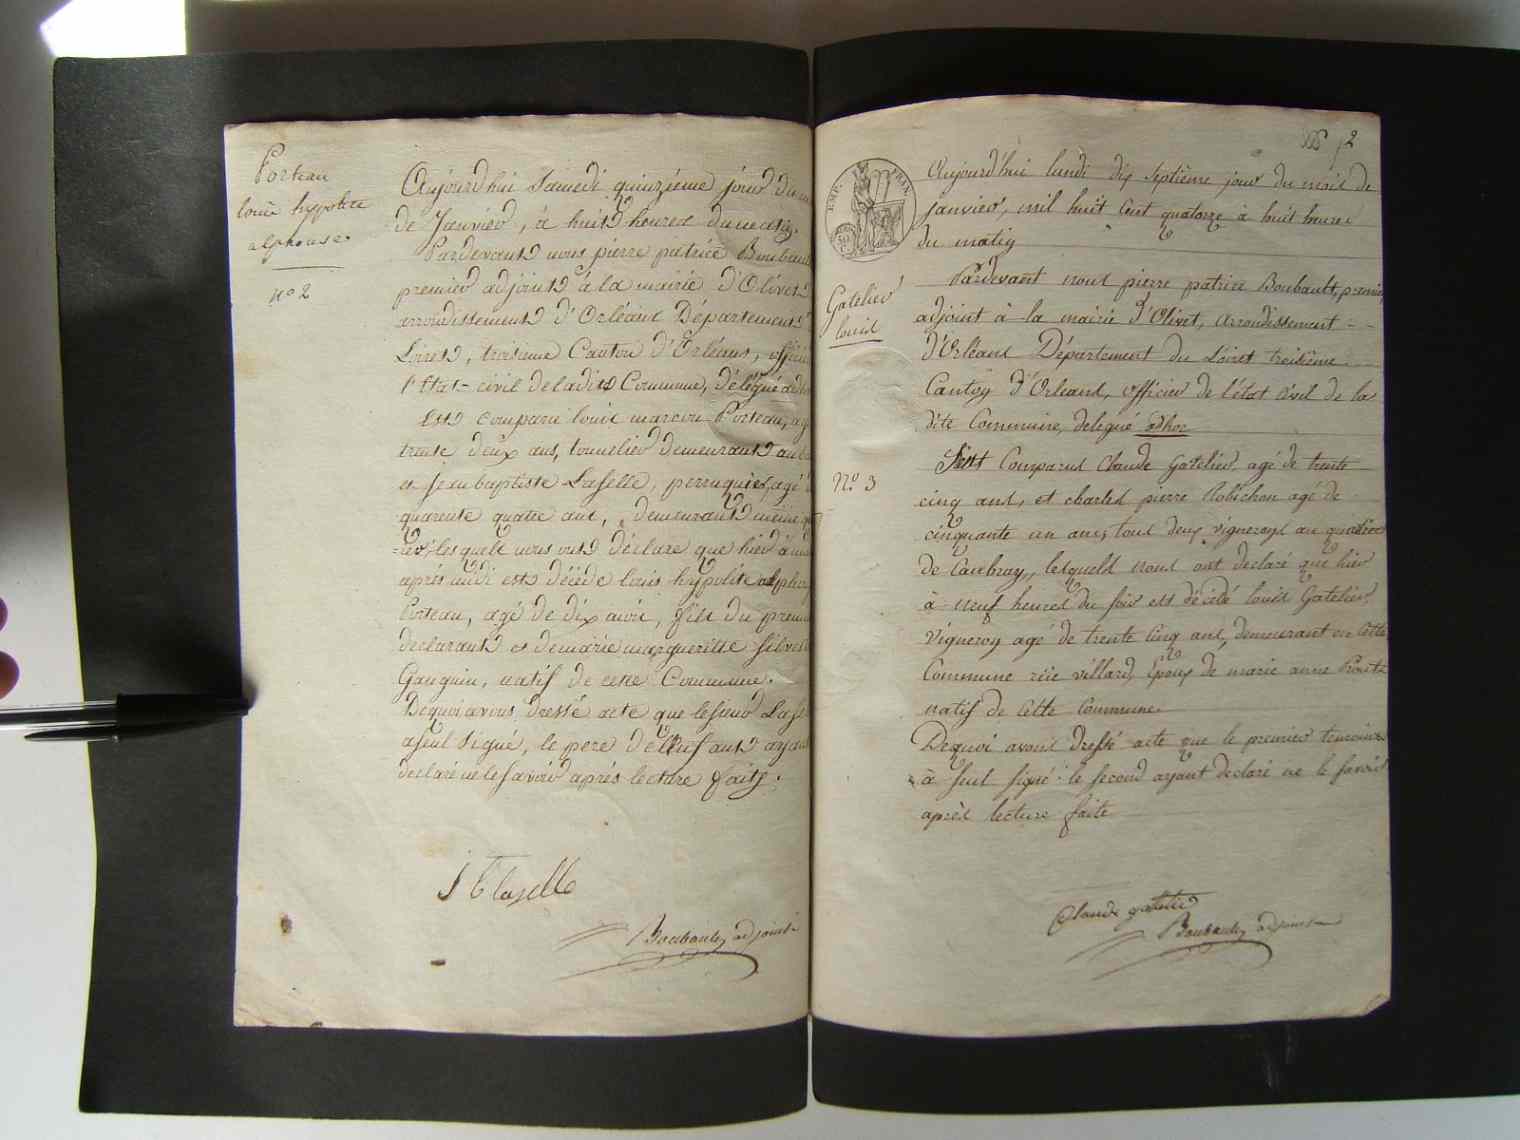 Porteau
louis hyppolite
alphonse.
n° 2
Aujourd'hui Samedi quinzième jour du
de Janvier, à huit heures du matin.
Pardevant nous pierre patrice Boubault
premier adjoint à la mairie d'Olivet
arrondissement d'Orléans Département
Loiret, troisieme Canton d'Orléans, officier
l'Etat-civil de ladite Commune, délégué adhoc
Est comparu louis marcou Porteau, agé
trente deux ans, tonnelier demeurant au
et jean baptiste Laselle, perruquier, agé
quarente quatre ans, demeurant même
lesquels nous ont déclaré que hier à
après midi est décédé louis hyppolite alphonse
Porteau, agé de dix mois, fils du premier
declarant et de marie margueritte
Gauguin, natif de cette Commune.
De quoi avons dressé acte que le sieur Laselle
a seul signé, le pere de l'Enfant ayant
declaré ne le savoir après lecture faite.
J B laselle
Boubault adjoint
2
EMP. FRAN.
Aujourd'hui lundi dix septième jour du mois de
janvier, mil huit cent quatorze à huit heures
du matin
Pardevant nous pierre patrice Boubault, premier
adjoint à la mairie d'Olivet, arrondissement
d'Orléans Département du Loiret troisième
Canton d'Orleans, officier de l'état civil de la
dite Commune, delegué adhoc
Gatelier
louis
N° 3
Sont Comparus Claude Gatelier, agé de trente
cinq ans, et charles pierre Robichon agé de
cinquante un ans, tous deux vignerons au quartier
de Caubray, lesquels nous ont declaré que hier
à neuf heures du soir est décédé louis Gatelier,
vigneron agé de trente cinq ans, demeurant en cette
Commune rüe villard, Epoux de marie anne
natif de cette Commune.
De quoi avons dressé acte que le premier temoin
à seul signé le second ayant declaré ne le savoir
après lecture faite
Claude gatelier
Boubault adjoint